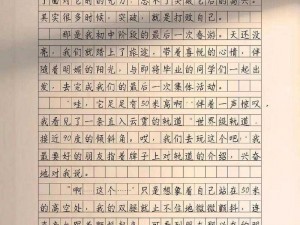 了面对它时的无力，忘不了突破它后的高兴。
其实很多时候，突破，就是打败自己。
那是我初中阶段的最后一次春游，天还没
亮，我们就踏上了旅途，带着喜悦的心情，伴
随着明媚的阳光，与即将毕业的同学们一起出
发，去完成我们的最后一次集体活动。
“哇，它足足有50米高啊”伴着一声惊叹，
我看见了一条直入云霄的轨道“世界级轨道，
接近90度的倾斜角。哎，我们去玩这个吧！”我
最要好的朋友指着牌子上对轨道的介绍，兴奋
地对我说。
“啊……这个……”只是想象着自己站在50米
的高空处，我的双腿就止不住地微微颤抖，连